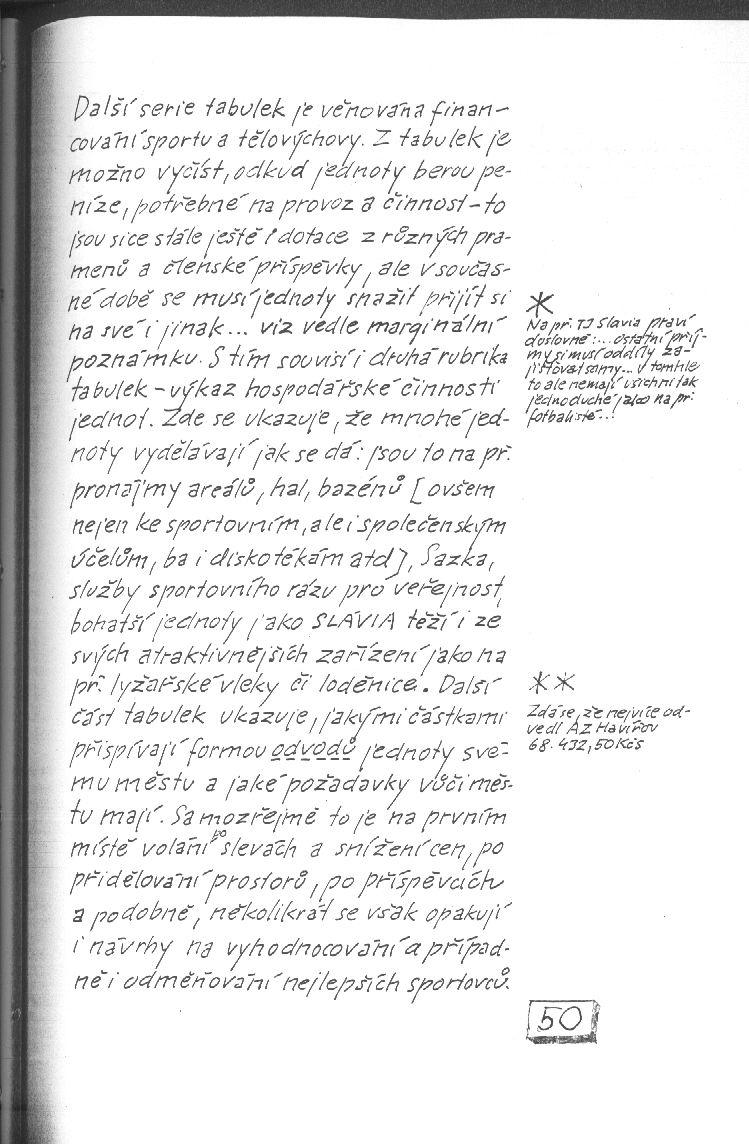 Další serie tabulek je věnována finan-
cování sportu a tělovýchovy. Z tabulek je
možno vyčíst, odkud jednoty berou pe-
níze, potřebné na provoz a činnost - to
jsou sice stále ještě i dotace z různých pra-
menů a členské příspěvky, ale v součas-
né době se musí jednoty snažit přijít si
na své i jinak... viz vedle marginální
poznámku. S tím souvisí i druhá rubrika
tabulek - výkaz hospodářské činnosti
jednot. Zde se ukazuje, že mnohé jed-
noty vydělávají jak se dá: jsou to na př.
pronájmy areálů, hal, bazénů [ovšem
nejen ke sportovním, ale i společenským
účelům, ba i diskotékám atd], Sazka,
služby sportovního rázu pro veřejnost,
bohatší jednoty jako SLAVIA těží i ze
svých atraktivnějších zařízení jako na
př. lyžařské vleky či loděnice. Další
část tabulek ukazuje, jakými částkami
přispívají formou odvodů jednoty své-
mu městu a jaké požadavky vůči měs-
tu mají. Samozřejmě to je na prvním
místě volání po slevách a snížení cen, po
přidělování prostorů, po příspěvcích
a podobně, několikrát se však opakují
i návrhy na vyhodnocování a případ-
ně i odměňování nejlepších sportovců.
*
Na př. TJ Slavia praví
doslovně:... ostatní příj-
my si musí oddíly za-
jišťovat samy... v tomhle
to ale nemají všichni tak
jednoduché jako na př.
fotbalisté...!
**
Zdá se, že nejvíce od-
vedl AZ Havířov
68.432,50 Kčs
50